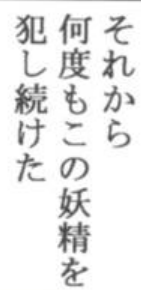 それから
何度もこの妖精を
犯し続けた